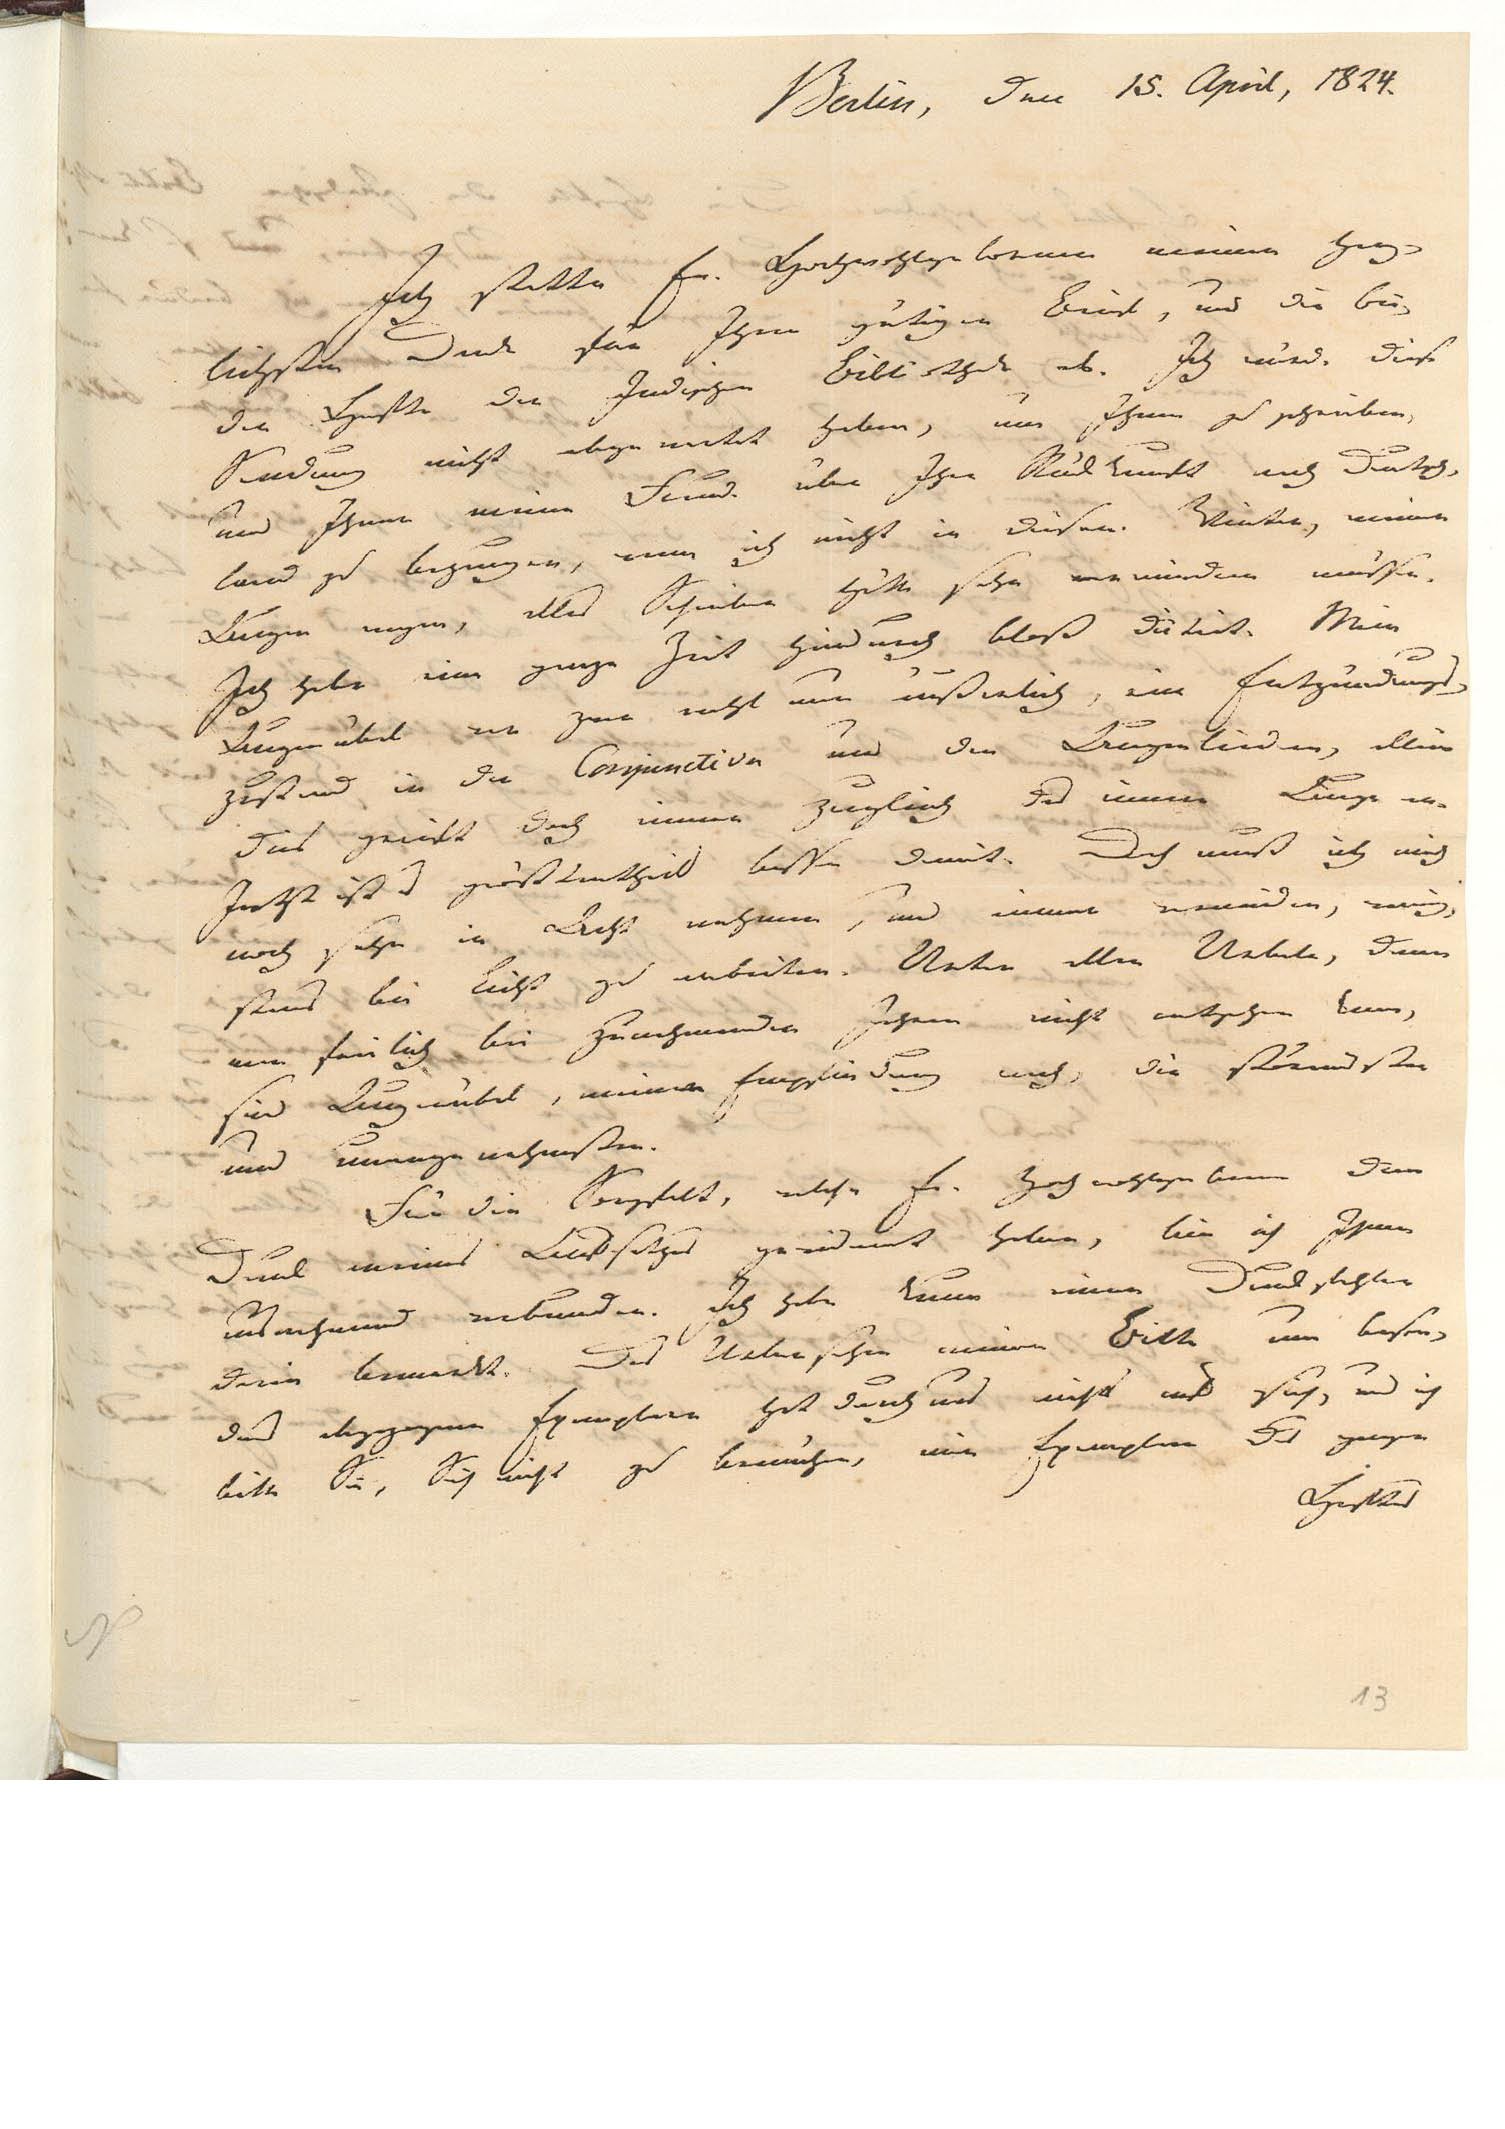 Berlin, den 15. April, 1824.
Ich statte Ew. Hochwohlgebornen meinen herz-
lichsten Dank für Ihren gütigen Brief, und die bei-
den Hefte der Indischen Bibliothek ab. Ich würde diese
Sendung nicht abgewartet haben, um Ihnen zu schreiben,
und Ihnen meine Freude über Ihre Rückkunft nach Deutsch-
land zu bezeugen, wenn ich nicht in diesem Winter, meiner
Augen wegen, alles Schreiben hätte sehr vermindern müssen.
Ich habe eine ganze Zeit hindurch bloß dictirt. Mein
Augenübel war zwar wohl nur äußerlich, ein Entzündungs-
zustand in der Conjunctiva und den Augenliedern, allein
dies greift doch immer zugleich das innere Auge an.
Jetzt ist es größtentheils besser damit. Doch muß ich mich
noch sehr in Acht nehmen, und immer vermeiden, wenig-
stens bei Licht zu arbeiten. Unter allen Uebeln, denen
man freilich bei zunehmenden Jahren nicht entgehen kann,
sind Augenübel, meiner Empfindung nach, die störendsten
und unangenehmsten.
Für die Sorgfalt, welche Ew. Hochwohlgebornen dem
Druck meines Aufsatzes gewidmet haben, bin ich Ihnen
ausnehmend verbunden. Ich habe kaum einen Druckfehler
darin bemerkt. Das Uebersehen meiner Bitte um beson-
ders abgezogene Exemplare hat durchaus nichts auf sich, und ich
bitte Sie, Sich nicht zu bemühen, mir Exemplare des ganzen
Heftes
13